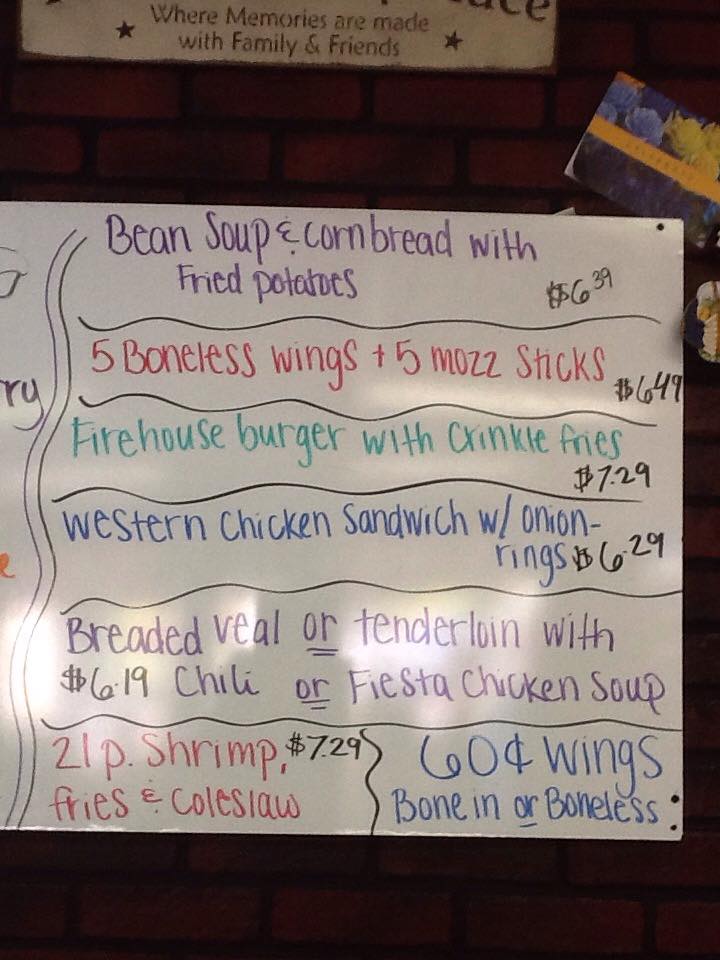 Where Memories are made
with Family & Friends
Bean Soup & cornbread with
Fried potatoes $6.39
5 Boneless wings + 5 mozz Sticks
$6.49
Firehouse burger with Crinkle fries
$7.29
Western Chicken Sandwich w/ onion-
rings $6.29
Breaded veal or tenderloin with
$6.19 Chili or Fiesta Chicken Soup
21p. Shrimp, $7.29
fries & Coleslaw
60¢ Wings
Bone in or Boneless